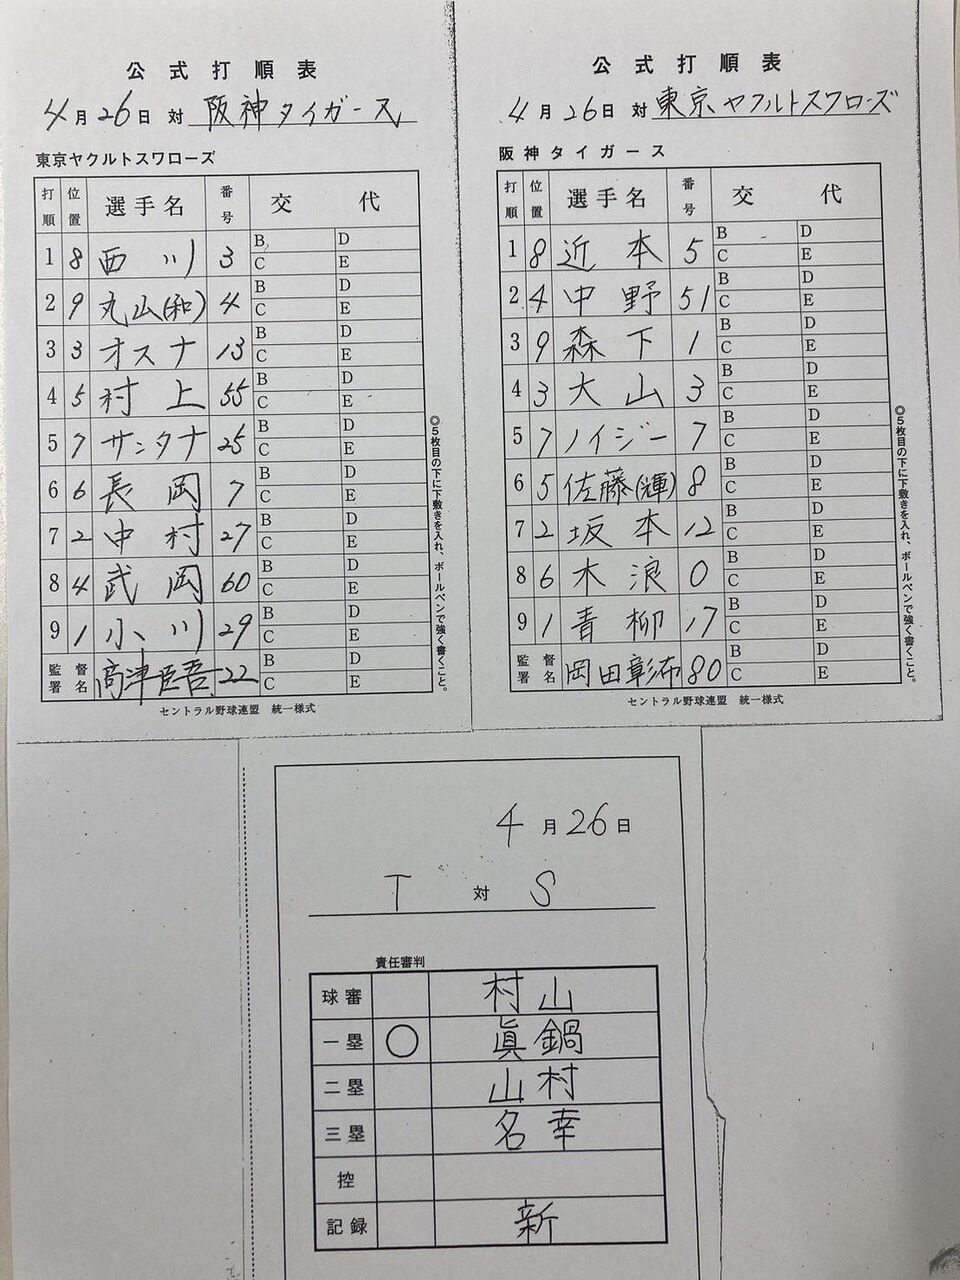 公式打順表
4月26日 対 阪神タイガース
東京ヤクルトスワローズ
打順 位置 選手名 番号 交代
1 8 西川 3 B D C E
2 9 丸山(和) 4 B D C E
3 3 オスナ 13 B D C E
4 5 村上 55 B D C E
5 7 サンタナ 25 B D C E
6 6 長岡 7 B D C E
7 2 中村 27 B D C E
8 4 武岡 60 B D C E
9 1 小川 29 B D C E
監督署名 高津臣吾 22 B D C E
セントラル野球連盟 統一様式
◎5枚目の下に下敷きを入れ、ボールペンで強く書くこと。
公式打順表
4月26日 対 東京ヤクルトスワローズ
阪神タイガース
打順 位置 選手名 番号 交代
1 8 近本 5 B D C E
2 4 中野 51 B D C E
3 9 森下 1 B D C E
4 3 大山 3 B D C E
5 7 ノイジー 7 B D C E
6 5 佐藤(輝) 8 B D C E
7 2 坂本 12 B D C E
8 6 木浪 0 B D C E
9 1 青柳 17 B D C E
監督署名 岡田彰布 80 B D C E
セントラル野球連盟 統一様式
◎5枚目の下に下敷きを入れ、ボールペンで強く書くこと。
4月26日
T 対 S
責任審判
球審 村山
一塁 ○ 眞鍋
二塁 山村
三塁 名幸
控
記録 新